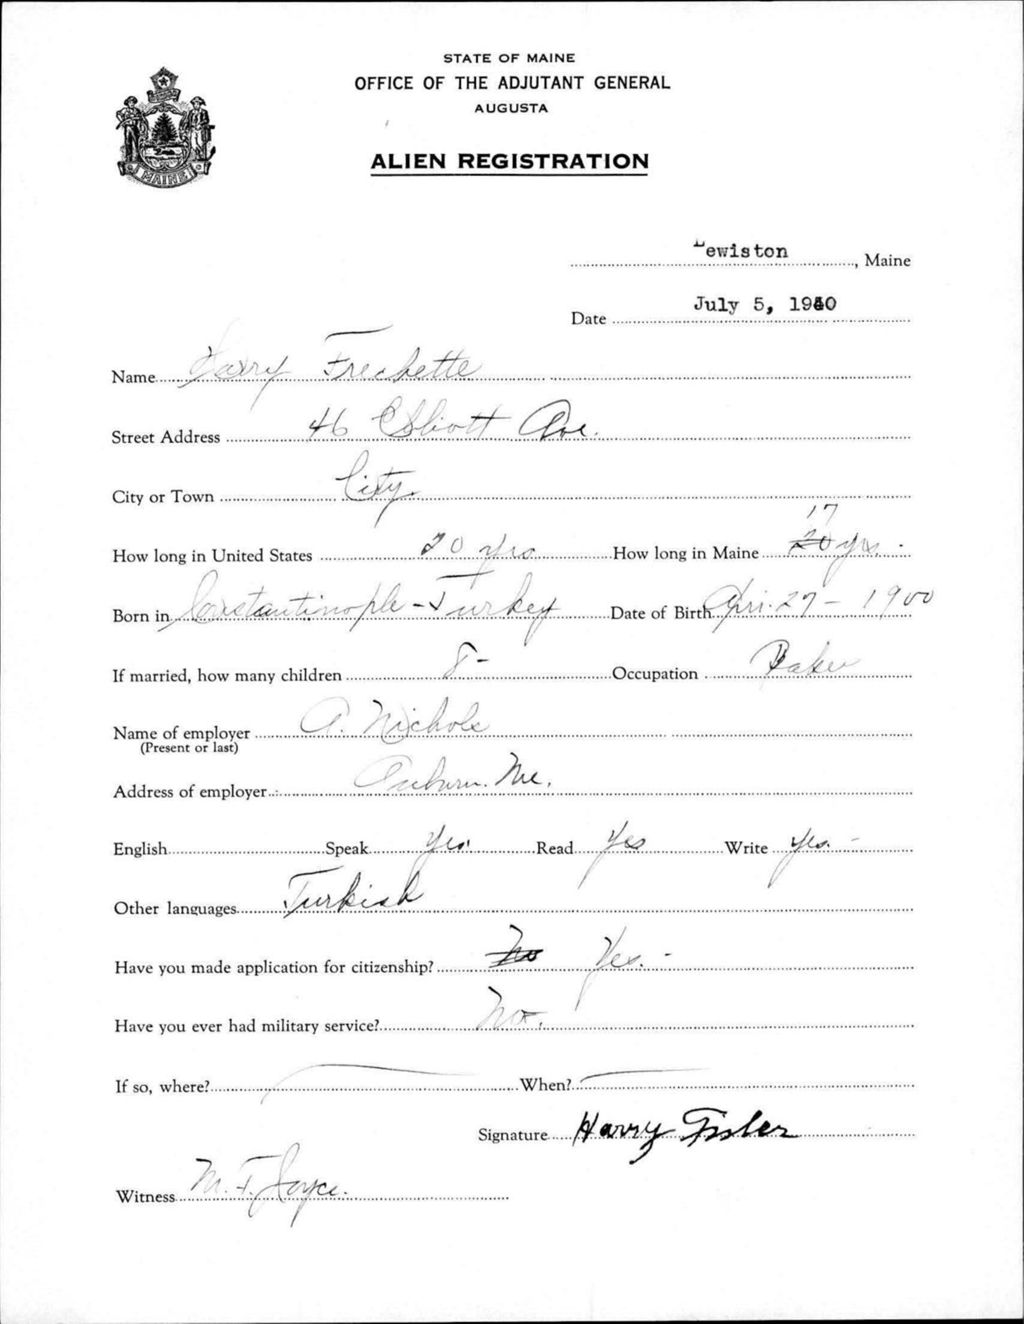 STATE OF MAINE
OFFICE OF THE ADJUTANT GENERAL
AUGUSTA
ALIEN REGISTRATION
MAINE
Lewiston, Maine
Date July 5, 1940
Name Harry Frechette
Street Address 46 Elliott Ave.
City or Town City
How long in United States 20 yrs How long in Maine 20 17 yrs.
Born in Constantinople - Turkey Date of Birth Apri. 27 - 1900
If married, how many children 8 - Occupation Baker
Name of employer A. Nichols
(Present or last)
Address of employer Auburn. Me.
English Speak Yes. Read Yes Write Yes. -
Other languages Turkish
Have you made application for citizenship? No Yes. -
Have you ever had military service? No.
If so, where? When?
Signature Harry Fisler
Witness M. F. Joyce.